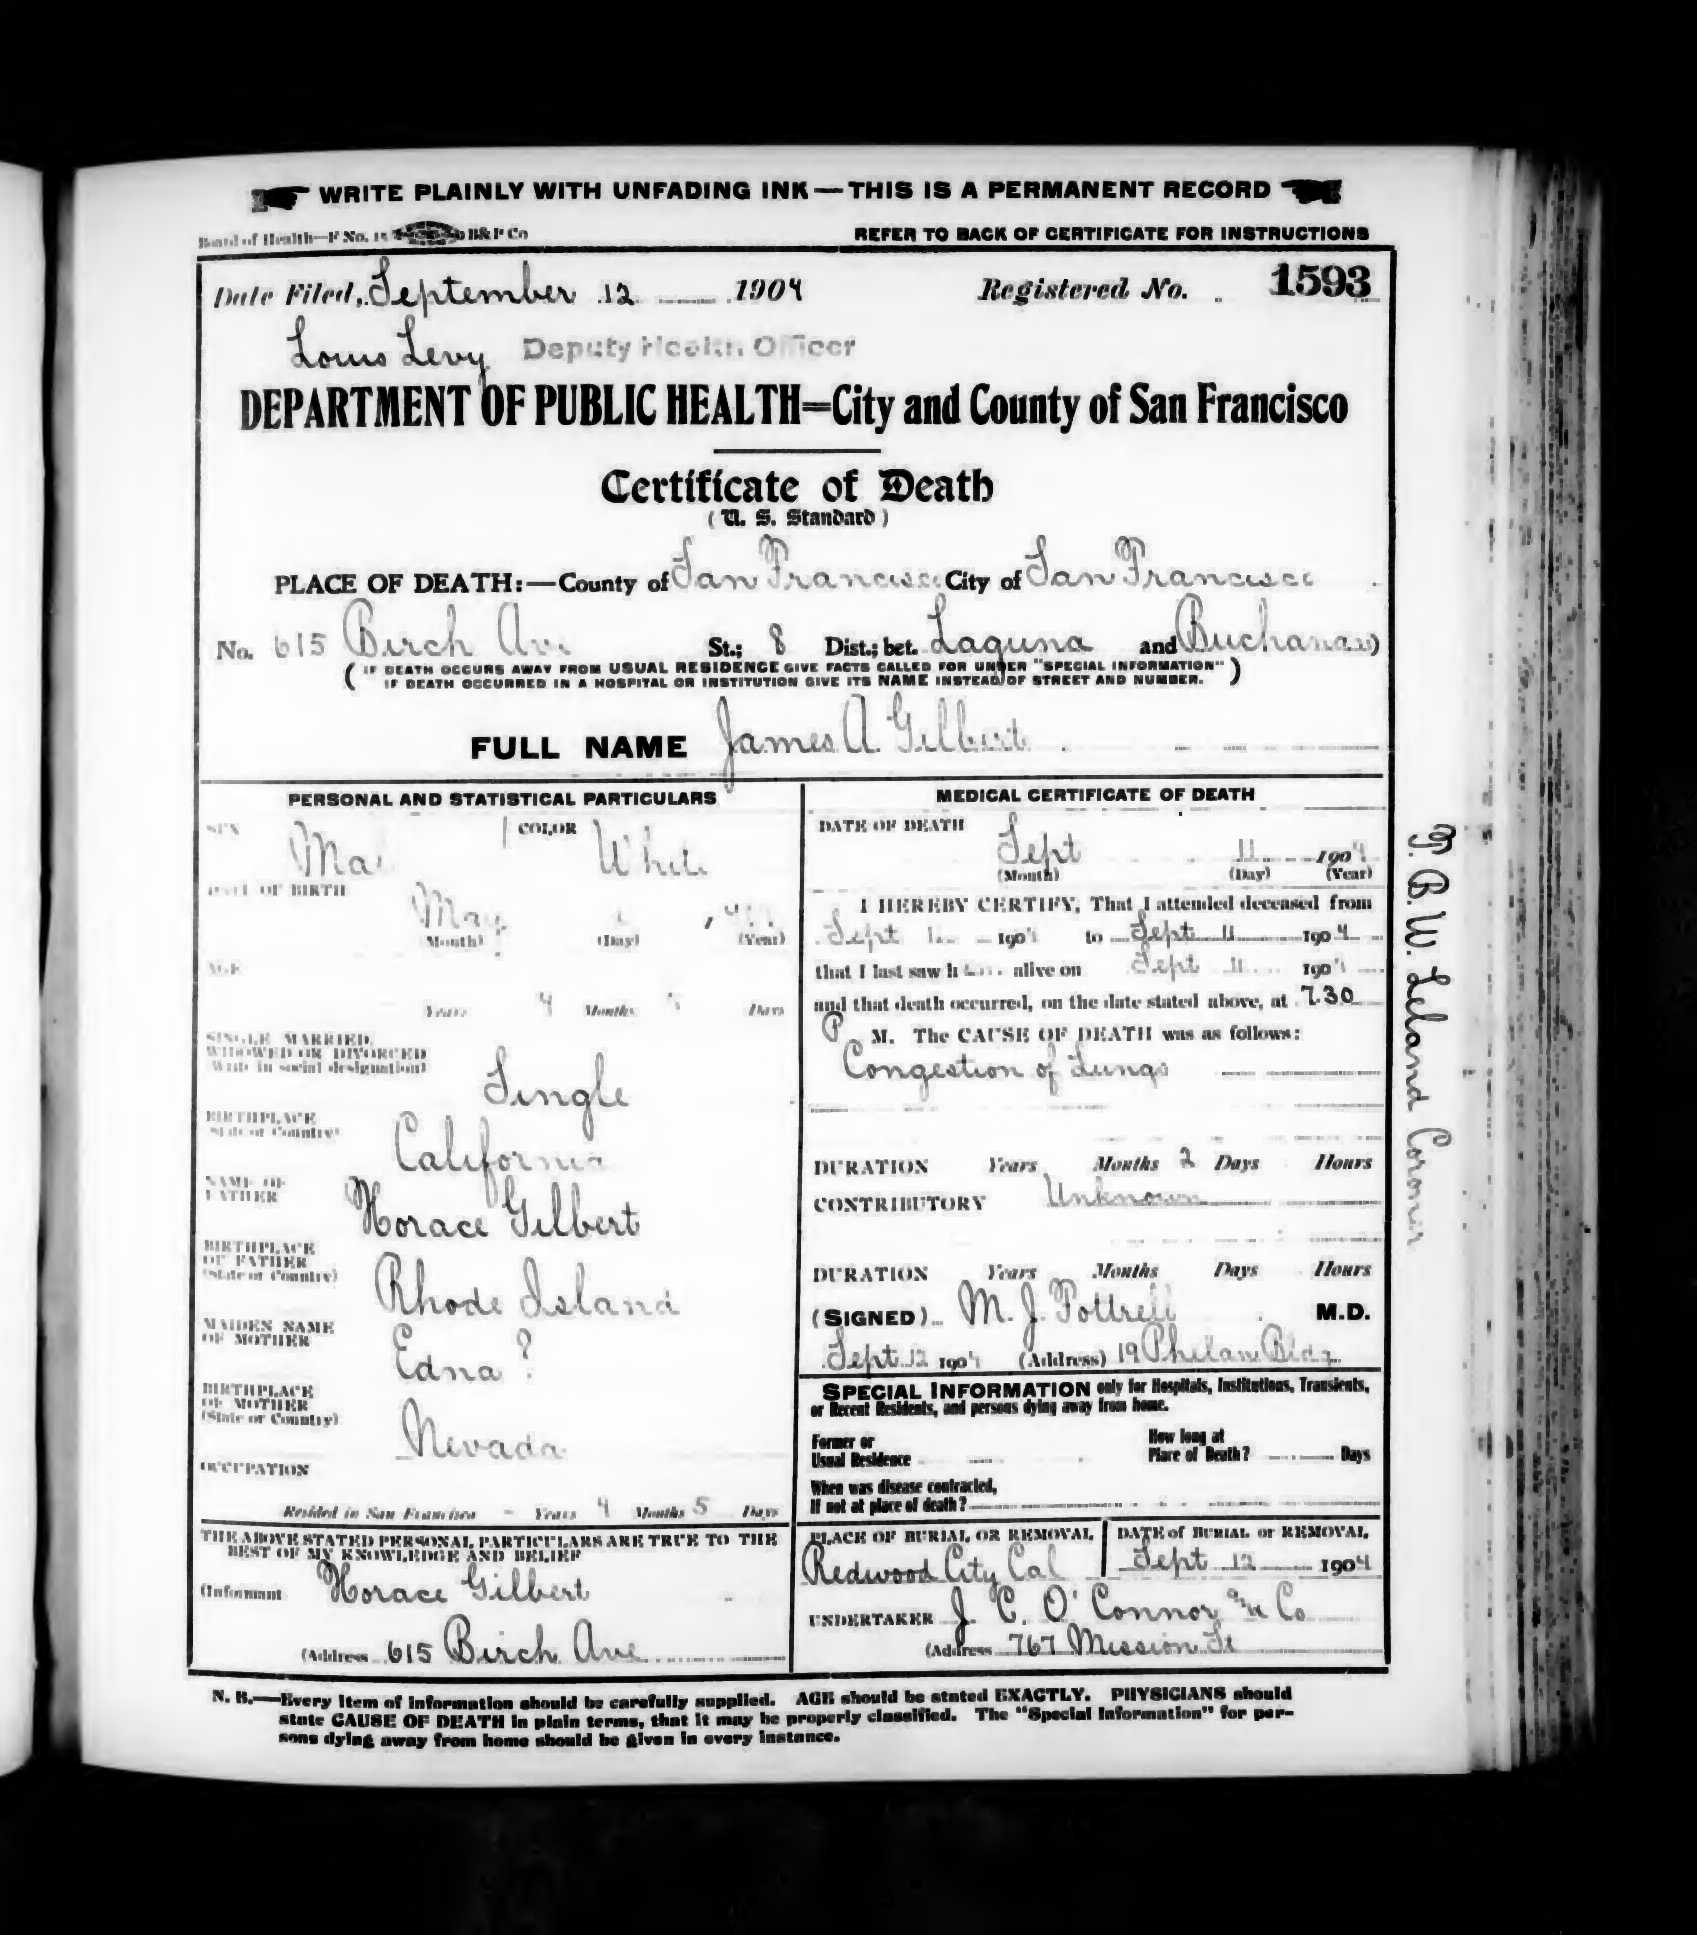 WRITE PLAINLY WITH UNFADING INK—THIS IS A PERMANENT RECORD
Board of Health—F No. 15 B&P Co REFER TO BACK OF CERTIFICATE FOR INSTRUCTIONS
Date Filed, September 12 1904 Registered No. 1593
Louis Levy Deputy Health Officer
DEPARTMENT OF PUBLIC HEALTH=City and County of San Francisco
Certificate of Death
(U. S. Standard)
PLACE OF DEATH:—County of San Francisco City of San Francisco
No. 615 Birch Ave St.; 8 Dist.; bet. Laguna and Buchanan
(IF DEATH OCCURS AWAY FROM USUAL RESIDENCE GIVE FACTS CALLED FOR UNDER "SPECIAL INFORMATION"
IF DEATH OCCURRED IN A HOSPITAL OR INSTITUTION GIVE ITS NAME INSTEAD OF STREET AND NUMBER.)
FULL NAME James A. Gilbert
PERSONAL AND STATISTICAL PARTICULARS
SEX COLOR White
DATE OF BIRTH May
(Month) (Day) (Year)
AGE
Years 4 Months 5 Days
SINGLE, MARRIED,
WIDOWED OR DIVORCED
(Write in social designation)
Single
BIRTHPLACE
(State or Country)
California
NAME OF
FATHER
Horace Gilbert
BIRTHPLACE
OF FATHER
(State or Country)
Rhode Island
MAIDEN NAME
OF MOTHER
Edna ?
BIRTHPLACE
OF MOTHER
(State or Country)
Nevada
OCCUPATION
Resided in San Francisco - Years 4 Months 5 Days
THE ABOVE STATED PERSONAL PARTICULARS ARE TRUE TO THE
BEST OF MY KNOWLEDGE AND BELIEF
(Informant Horace Gilbert
(Address 615 Birch Ave
MEDICAL CERTIFICATE OF DEATH
DATE OF DEATH
Sept 11 1904
(Month) (Day) (Year)
I HEREBY CERTIFY, That I attended deceased from
Sept 11 1904 to Sept 11 1904
that I last saw h alive on Sept 11 1904
and that death occurred, on the date stated above, at 7.30
P M. The CAUSE OF DEATH was as follows:
Congestion of Lungs
DURATION Years Months 2 Days Hours
CONTRIBUTORY Unknown
DURATION Years Months Days Hours
(SIGNED) M. J. Pottrell M.D.
Sept 12 1904 (Address) 19 Phelan Bldg
SPECIAL INFORMATION only for Hospitals, Institutions, Transients,
or Recent Residents, and persons dying away from home.
Former or
Usual Residence
How long at
Place of Death? Days
When was disease contracted,
If not at place of death?
PLACE OF BURIAL OR REMOVAL
Redwood City Cal
DATE of BURIAL or REMOVAL
Sept 12 1904
UNDERTAKER J. C. O'Connor & Co
(Address 767 Mission St
N. B.—Every item of information should be carefully supplied. AGE should be stated EXACTLY. PHYSICIANS should
state CAUSE OF DEATH in plain terms, that it may be properly classified. The "Special Information" for per-
sons dying away from home should be given in every instance.
T. B. W. Leland Coroner